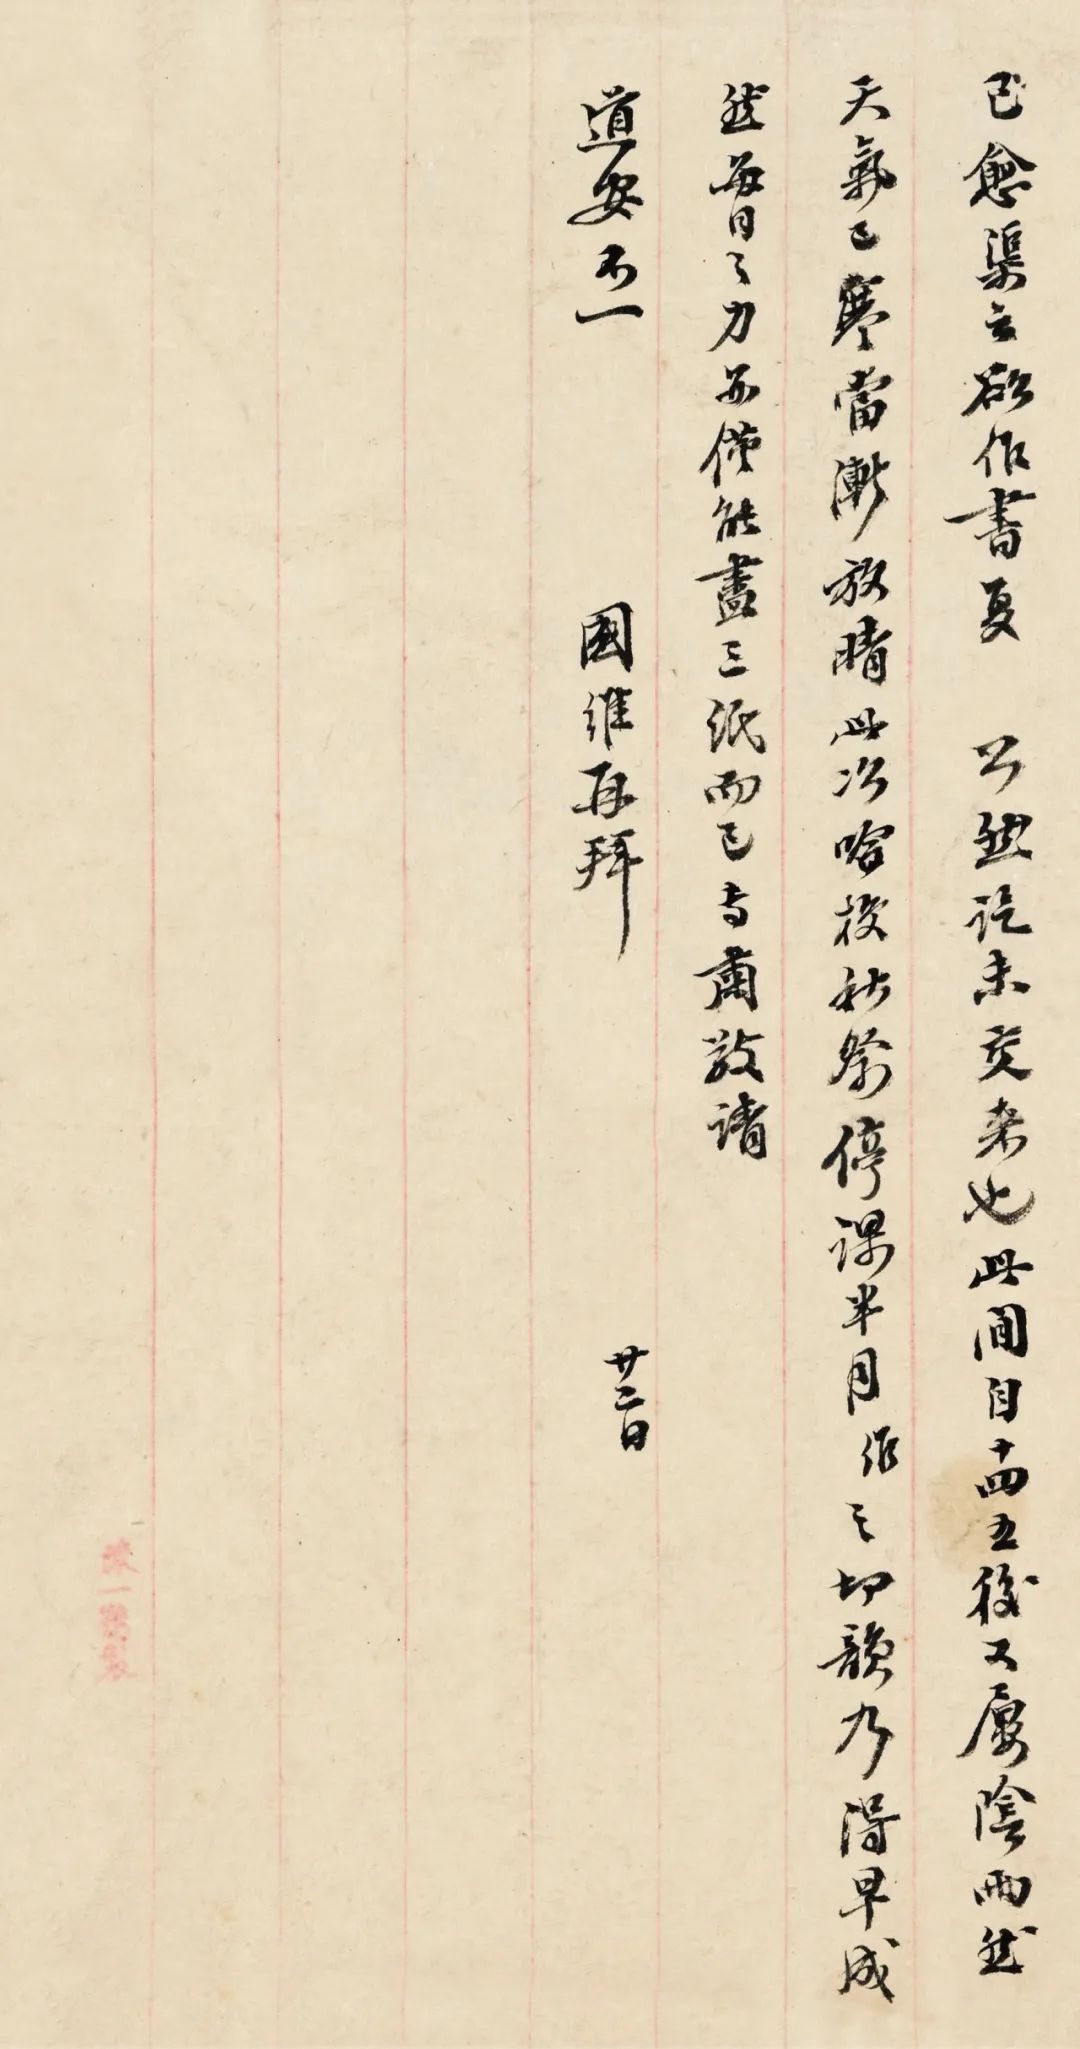 已愈渠云欲作書复 公然訖未交来也此間自十四五後又屢陰雨然
天氣已寒當漸放晴此次哈校秋祭停課半月作之切韻乃得早成
然每日之力亦僅能盡三紙而已专肅敬請
道安不一
國維再拜
廿二日